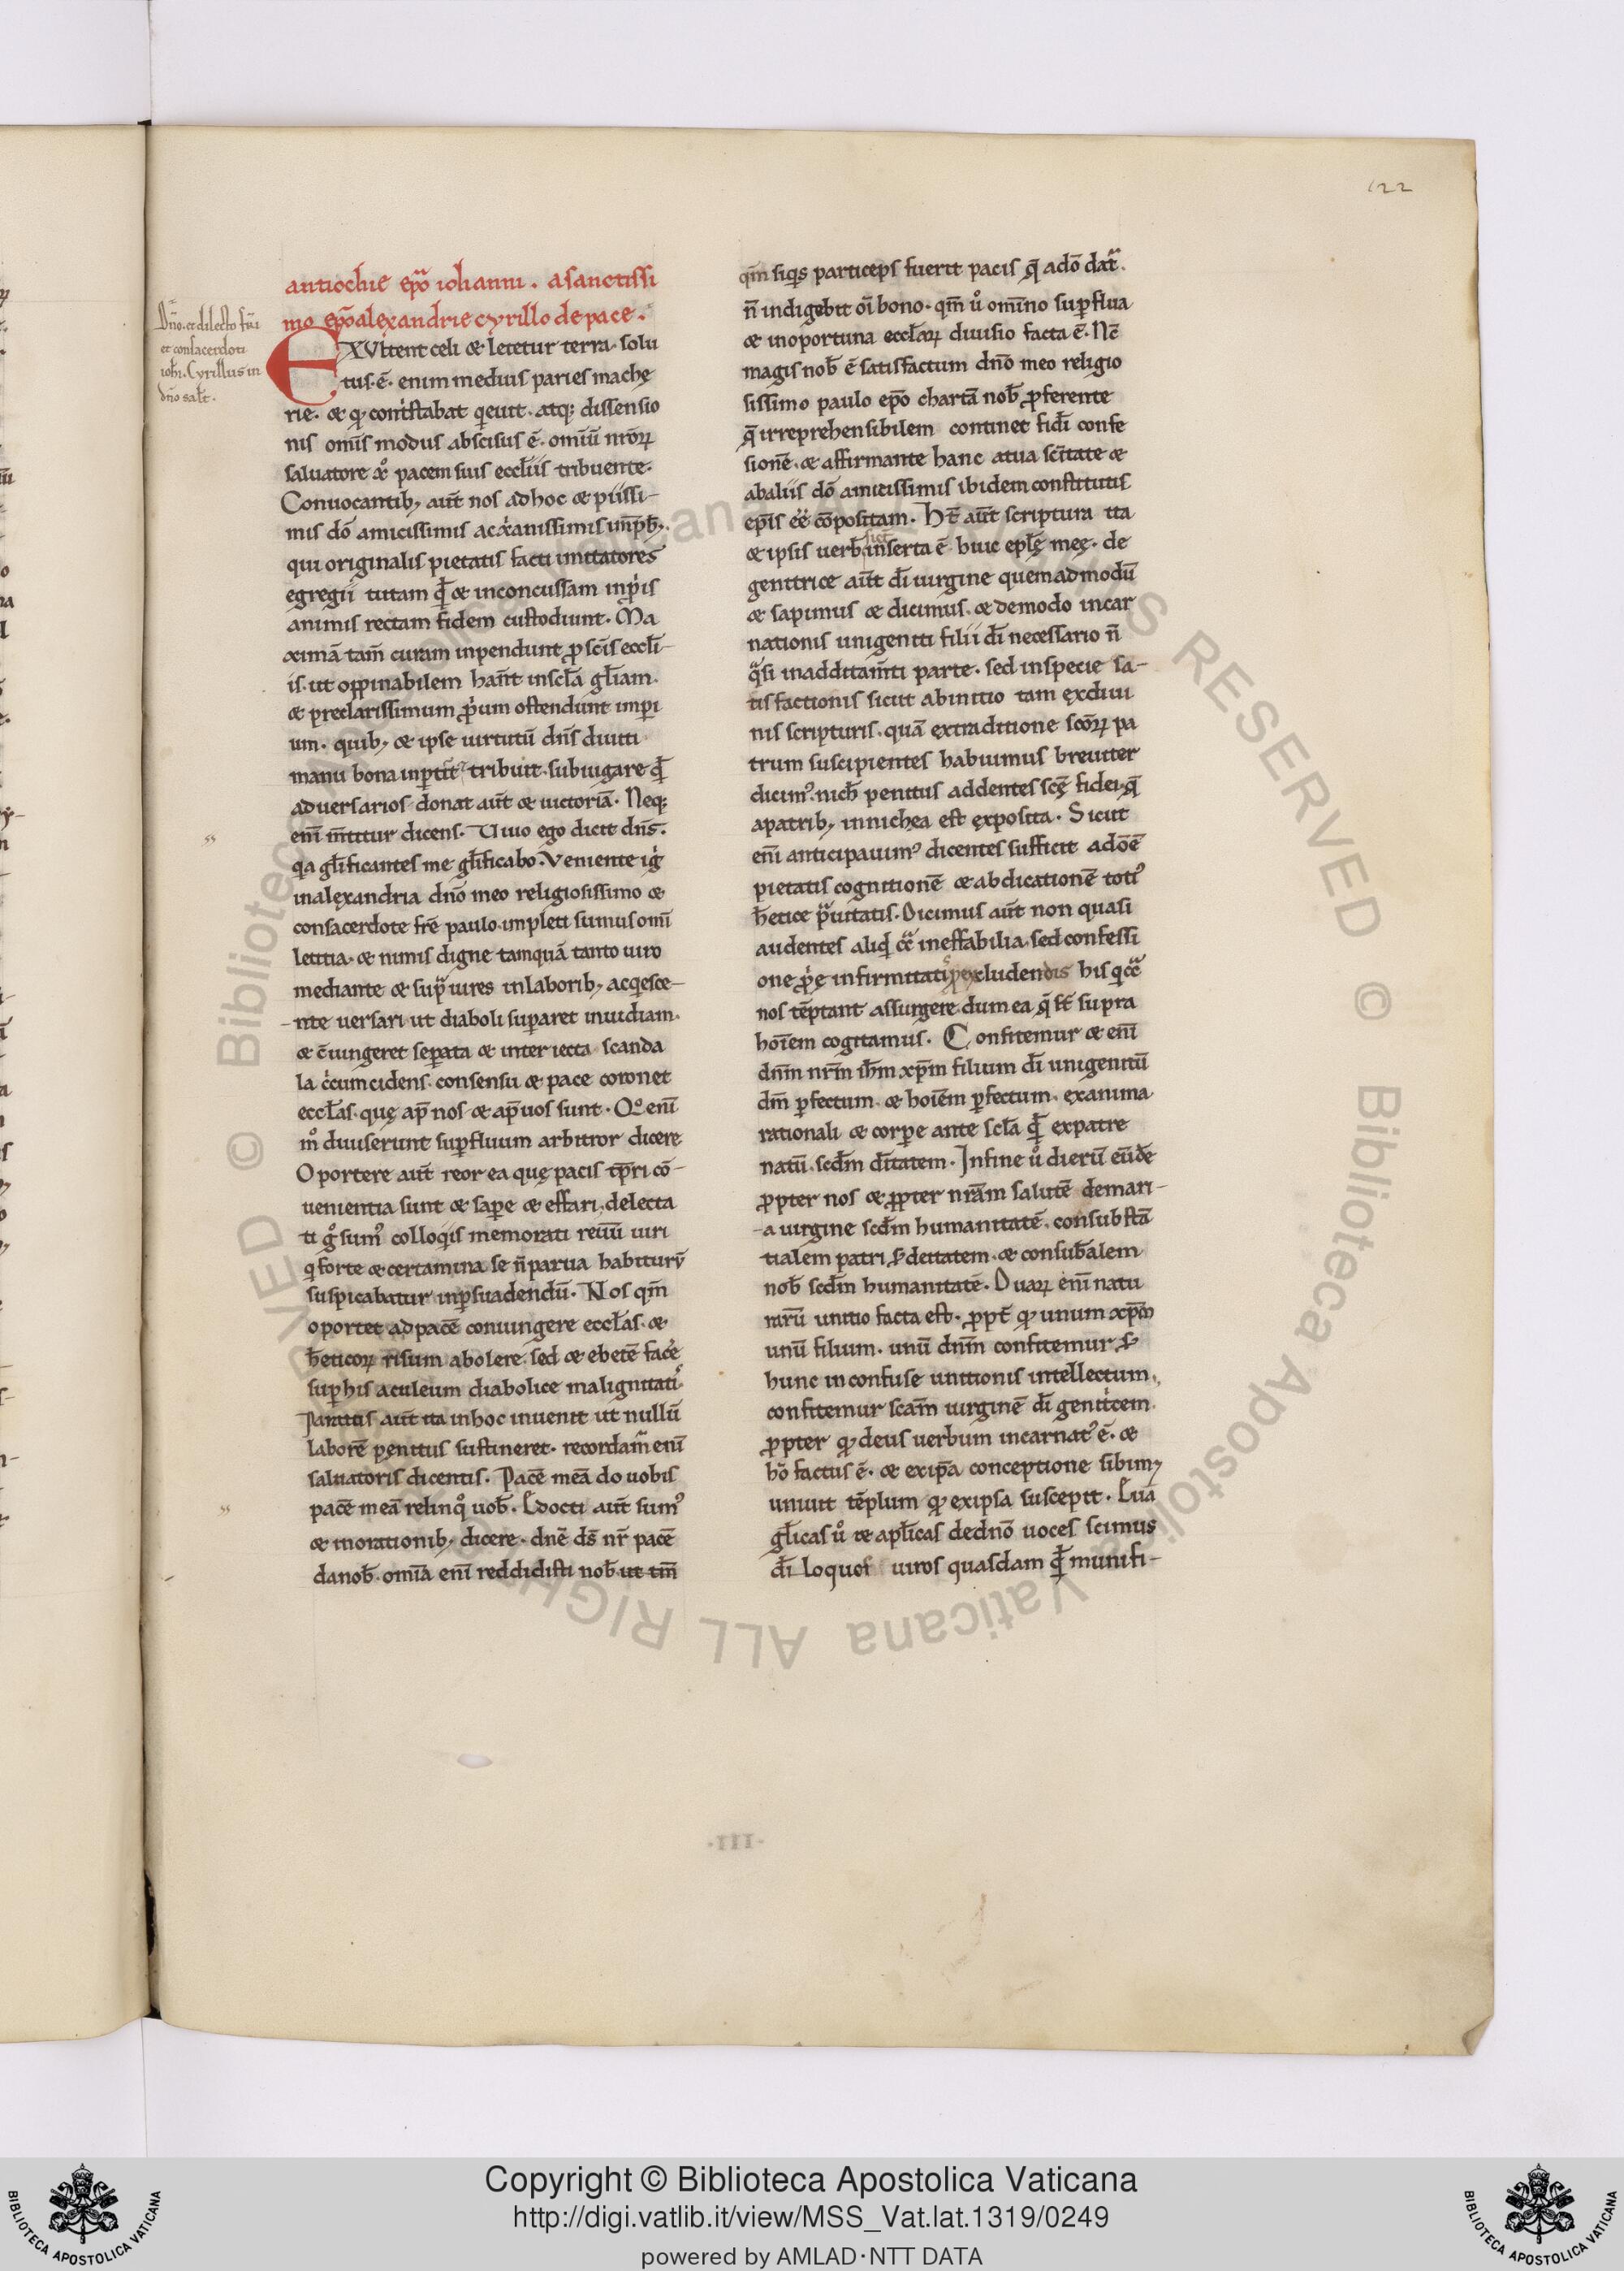 122
antiochie ep̄o iohanni. asanctissi
mo ep̄oalexandrie cyrillo de pace.
Dn̄o. et dilecto fr̄i
et consacerdoti
ioh̄i. Cyrillus in
dn̄o salt̄.
EXVltent celi & letetur terra. solu
tus. ē. enim medius paries machę
rie. & qͥ contͥstabat qͥeuit. atq; dissensio
nis om̄is modus abscisus ē. om̄iū nr̄oꝝ
saluatore xͦ pacem suis eccl̄iis tribuente.
Conuocantibꝫ aut̄ nos ad hoc & piissi-
mis dō amicissimis ac xͥanissimis impꝑbꝫ.
qui originalis pietatis facti imitatores
egregii tutam qͥd & inconcussam inpͥis
animis rectam fidem custodiunt. Ma
ximā tam̄ curam inpendunt ꝓ sc̄is eccl̄i-
is. ut oppinabilem hant̄ inscl̄a gl̄iam.
& preclarissimum ꝓpͥum ostendunt imꝑi
um. quibꝫ & ipse uirtutū dn̄s diuiti
manu bona inꝑtit̄ tribuit. subiugare qͥd
aduersarios donat aut̄ & uictoriā. Neq;
eni m̄titur dicens. Uiuo ego dicit dn̄s.
qͥa gl̄ificantes me gl̄ificabo. Veniente igͥ
inalęxandria dn̄o meo religiosissimo &
consacerdote fr̄e paulo. impleti sumus om̄i
letitia. & nimis digne tamquā tanto uiro
mediante & supͣ uires inlaboribꝫ acqͥesce-
-nte uersari ut diaboli suꝑaret inuidiam.
& c̄iungeret seꝑata & interiecta scanda
la cͥcumcidens. consensu & pace coronet
eccl̄as. quę ap̄ nos & ap̄ uos sunt. Qͦ eni
mͦ diuiserunt suꝑfluum arbitror dicere
Oportere aut̄ reor ea quę pacis tp̄ri cō-
uenientia sunt & saꝑe & effari. delecta
ti gͦ sumꝰ colloqͥis memorati reuū uiri
qͥ forte & certamina se n̄ parua habiturū
suspicabatur inꝑsuadendū. Nos qm̄
oportet ad pacē coniungere eccl̄as. &
h̄eticoꝝ risum abolere. sed & ebetē facͥe
suꝑ his aculeum diabolice malignitatiꝰ.
Paratis aut̄ ita in hoc inuenit ut nullū
laborē penitus sustineret. recordam̄ eni
saluatoris dicentis. Pacē meā do uobis
pacē meā relinqͦ uob̄. Edocti aut̄ sumꝰ
& inorationibꝫ dicere. dnē ds̄ nr̄ pacē
danob̄. om̄ia eni reddidisti nob̄. ut tm̄
qm̄ siqͥs particeps fuerit pacis qͣ adō datͬ.
n̄ indigebit oī bono. qm̄ uͦ om̄ino suꝑflua
& inoportuna eccl̄aꝝ diuisio facta ē. Nc̄
magis nob̄ ē satisfactum dn̄o meo religio
sissimo paulo ep̄o chartā nob̄ ꝓferente
qͣ irreprehensibilem continet fidi confe
sionē. & affirmante hanc atua scītate &
abaliis dō amicissimis ibidem constitutis
ep̄is ee̅ cōpositam. Hr̄ aut̄ scriptura ita
& ipsis uerb̄ sict̄ inserta ē huic epl̄ę meę. de
genitrice aut̄ di uirgine quemadmodū
& sapimus & dicimus. & de modo incar
nationis unigeniti filii di necessario n̄
qͣsi inadditam̄ti parte. sed in specie sa-
tisfactionis sicut abinitio tam exdiui
nis scripturis. quā extraditione sc̄oꝝ pa
trum suscipientes habuimus breuiter
dicimꝰ. nich̄ penitus addentes scę̄ fidei. qͣ
apatribꝫ innichea est exposita. Sicut
eni anticipauimꝰ dicentes sufficit ad oēm
pietatis cognitionē & abdicationē totiꝰ
h̄etice pͣuitatis. Dicimus aut̄ non quasi
audentes aliqd̄ cͨͣ ineffabilia. sed confessi
one ꝓpͥe infirmitatiꝰ ꝓ excludendis his qͥ cͣ
nos tēptant assurgere. dum ea qͣ st̄ supra
hoīem cogitamus. Confitemur & eni
dn̄m nr̄m ih̄m xp̄m filium di unigenitū
dm̄ ꝑfectum. & hoiem ꝑfectum. exanima
rationali & corꝑe ante scl̄a qͥd expatre
natū. scd̄m d̄itatem. Infine uͦ dierū eūde
ꝓpter nos & ꝓpter nr̄am salutē demari-
-a uirgine scd̄m humanitatē. consubstā
tialem patri. scd̄ deitatem. & consub̄alem
nob̄ scd̄m humanitatē. Duaꝝ eni natu
rarū unitio facta est. ꝓpt̄ qͥ unum xp̄m
unū filium. unū dn̄m confitemur scd̄
hunc inconfuse unitionis intellectum.
confitemur sc̄am uirginē di genitͥcem.
ꝓpter qͥ deus uerbum incarnatꝰ ē. &
hō factus ē. & exip̄a conceptione sibimꝫ
uniuit tēplum qͥ exipsa suscepit. Euā
gl̄icas uͦ & apl̄icas dedn̄o uoces scimus
di loquos uiros quasdam qͥd munifi-
·III·